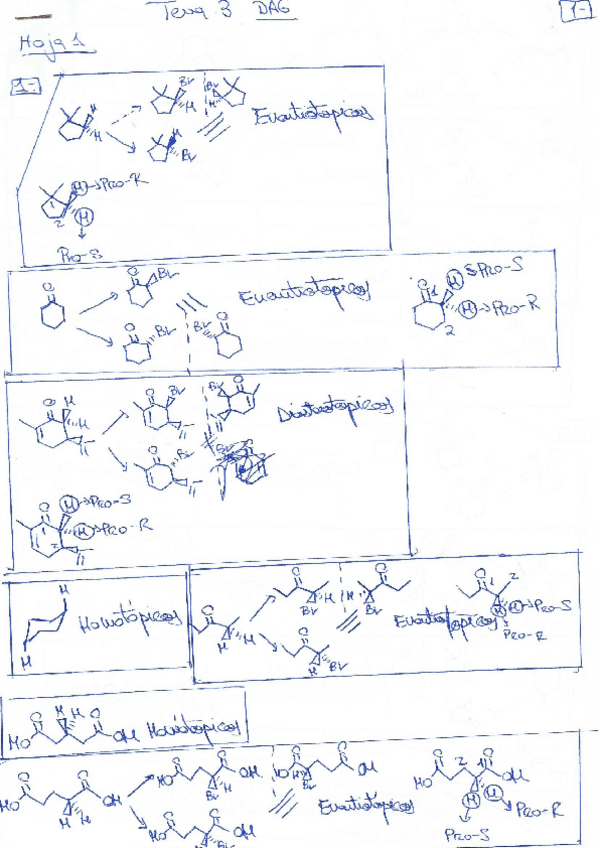 Tema 3 DAG
1-
Hoja 1
1-
Br Br
H H H
H Enantiotópicos
H
Br
H → Pro-R
1
2 H
Pro-S
O O Br
Enantiotópicos
H → Pro-S
O 1
H → Pro-R
2
O O
Br Br
O H O Br Br O
H Diasterotópicos
O Br Br
O H → Pro-S
1 H → Pro-R
2
H
Homotópicos
H
O O O O 1 2
H H Br H H Br
Enantiotópicos
H H → Pro-S
Pro-R
O
H Br
O H H O
HO OH Homotópicos
O O O O O O O O
HO OH HO OH HO OH HO OH
H H Br H Br 2 1
Enantiotópicos
H H → Pro-R
Pro-S
O O
HO OH
Br